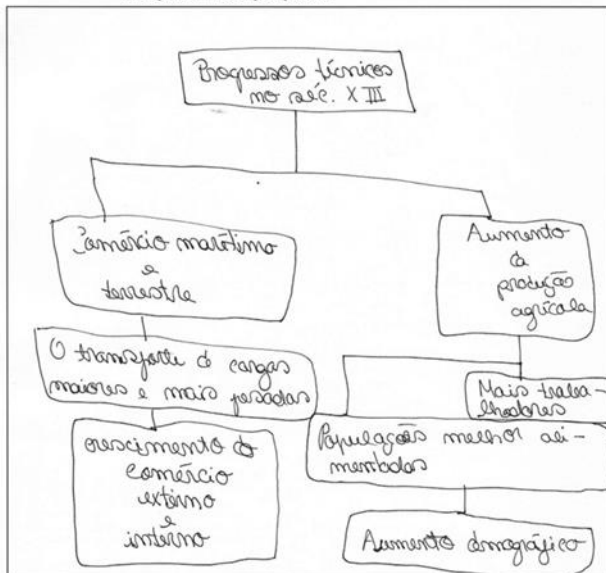 Progressos técnicos
no séc. XIII
Comércio marítimo
e
terrestre
O transporte de cargas
maiores e mais pesadas
crescimento do
comércio
externo
e
intérno
Aumento
da
produção
agrícola
Mais traba-
lhadores
Populações melhor ali-
mentadas
Aumento demográfico